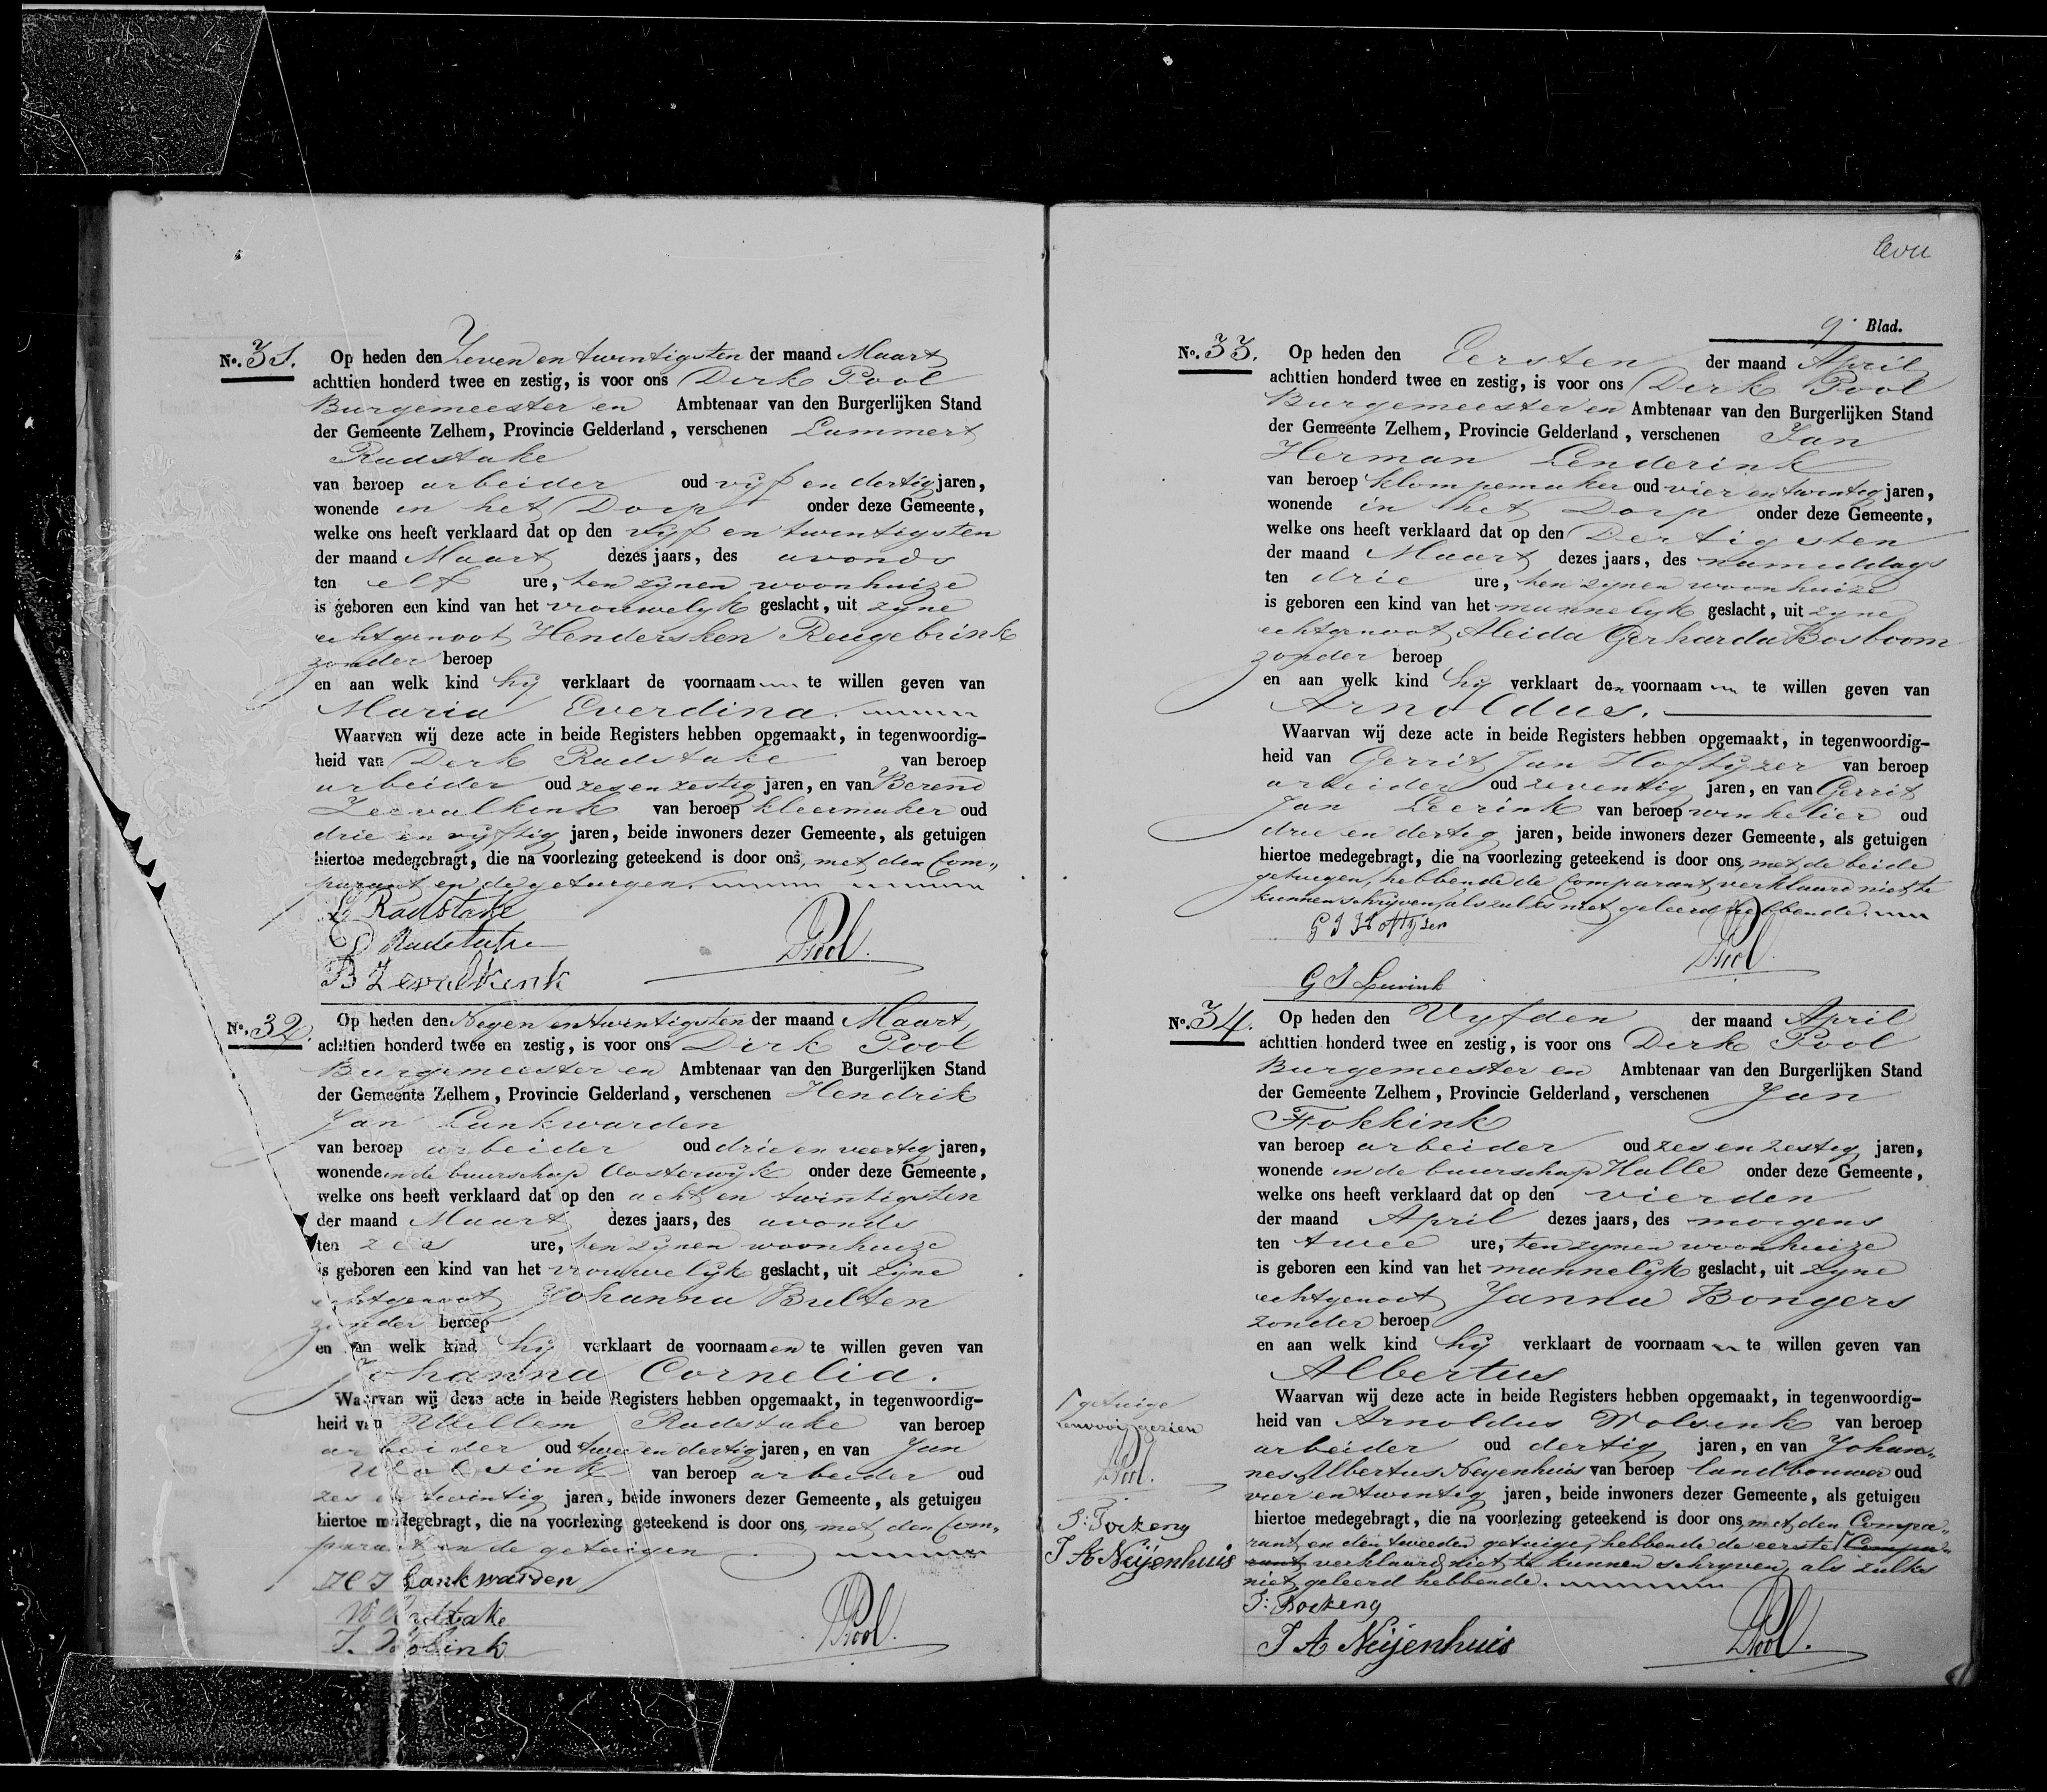 No. 31. Op heden den Zeven en twintigsten der maand Maart
achttien honderd twee en zestig, is voor ons Derk Pool
Burgemeester en Ambtenaar van den Burgerlijken Stand
der Gemeente Zelhem, Provincie Gelderland, verschenen Lammert
Radstake
van beroep arbeider oud vyf en dertig jaren,
wonende in het Dorp onder deze Gemeente,
welke ons heeft verklaard dat op den vyf en twintigsten
der maand Maart dezes jaars, des avonds
ten elf ure, ten zynen woonhuize
is geboren een kind van het vrouwelyk geslacht, uit zyne
echtgenoot Hendersken Reugebrink
zonder beroep
en aan welk kind hy verklaart de voornaam te willen geven van
Maria Everdina.
Waarvan wij deze acte in beide Registers hebben opgemaakt, in tegenwoordig-
heid van Derk Radstake van beroep
arbeider oud zes en zestig jaren, en van Berend
Zevalkink van beroep kleermaker oud
drie en vyftig jaren, beide inwoners dezer Gemeente, als getuigen
hiertoe medegebragt, die na voorlezing geteekend is door ons, met den Com„
parant en de getuigen.
L Radstake
D Radstake
B Zevalkink
DPool.
No. 32. Op heden den Negen en twintigsten der maand Maart
achttien honderd twee en zestig, is voor ons Derk Pool
Burgemeester en Ambtenaar van den Burgerlijken Stand
der Gemeente Zelhem, Provincie Gelderland, verschenen Hendrik
Jan Lankwarden
van beroep arbeider oud drie en veertig jaren,
wonende in de buurschap Oosterwyk onder deze Gemeente,
welke ons heeft verklaard dat op den acht en twintigsten
der maand Maart dezes jaars, des avonds
ten zes ure, ten zynen woonhuize
is geboren een kind van het vrouwelyk geslacht, uit zyne
echtgenoot Johanna Bulten
zonder beroep
en aan welk kind hy verklaart de voornaamen te willen geven van
Johanna Cornelia.
Waarvan wij deze acte in beide Registers hebben opgemaakt, in tegenwoordig-
heid van Willem Radstake van beroep
arbeider oud twee en dertig jaren, en van Jan
Wolsink van beroep arbeider oud
zes en twintig jaren, beide inwoners dezer Gemeente, als getuigen
hiertoe medegebragt, die na voorlezing geteekend is door ons, met den Com„
parant en de getuigen
H J Lankwarden
W Radstake
J. Wolsink
DPool.
9e Blad.
No. 33. Op heden den Eersten der maand April
achttien honderd twee en zestig, is voor ons Derk Pool
Burgemeester en Ambtenaar van den Burgerlijken Stand
der Gemeente Zelhem, Provincie Gelderland, verschenen Jan
Herman Lenderink
van beroep klompemaker oud vier en twintig jaren,
wonende in het Dorp onder deze Gemeente,
welke ons heeft verklaard dat op den Dertigsten
der maand Maart dezes jaars, des namiddags
ten drie ure, ten zynen woonhuize
is geboren een kind van het mannelyk geslacht, uit zyne
echtgenoot Aleida Gerharda Bosboom
zonder beroep
en aan welk kind hy verklaart den voornaam te willen geven van
Arnoldus.
Waarvan wij deze acte in beide Registers hebben opgemaakt, in tegenwoordig-
heid van Gerrit Jan Hoftyzer van beroep
arbeider oud zeventig jaren, en van Gerrit
Jan Leerink van beroep winkelier oud
drie en dertig jaren, beide inwoners dezer Gemeente, als getuigen
hiertoe medegebragt, die na voorlezing geteekend is door ons, met de beide
getuigen, hebbende de Comparant verklaard niet te
kunnen schryven, als zulks niet geleerd hebbende.
G J Hoftyzer
G J Leerink
DPool.
No. 34. Op heden den Vyfden der maand April
achttien honderd twee en zestig, is voor ons Derk Pool
Burgemeester en Ambtenaar van den Burgerlijken Stand
der Gemeente Zelhem, Provincie Gelderland, verschenen Jan
Fokkink
van beroep arbeider oud zes en zestig jaren,
wonende in de buurschap Halle onder deze Gemeente,
welke ons heeft verklaard dat op den vierden
der maand April dezes jaars, des morgens
ten twee ure, ten zynen woonhuize
is geboren een kind van het mannelyk geslacht, uit zyne
echtgenoot Janna Bongers
zonder beroep
en aan welk kind hy verklaart de voornaam te willen geven van
Albertus
Waarvan wij deze acte in beide Registers hebben opgemaakt, in tegenwoordig-
heid van Arnoldus Wolsink van beroep
arbeider oud dertig jaren, en van Johan„
nes Albertus Neyenhuis van beroep landbouwer oud
vier en twintig jaren, beide inwoners dezer Gemeente, als getuigen
hiertoe medegebragt, die na voorlezing geteekend is door ons, met den Compa„
rant en den tweeden getuige, hebbende de eerste Compa„
rant verklaard niet te kunnen schryven, als zulks
niet geleerd hebbende.
J A Neijenhuis
DPool.
getuige
gezien
DPool.
J A Neijenhuis